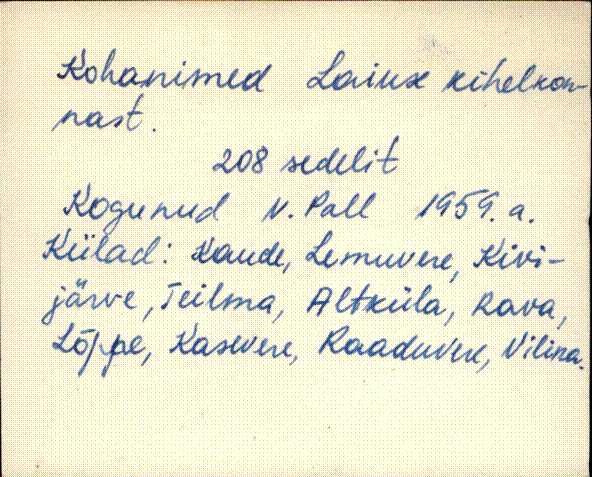 Kohanimed Laiuse kihelkon-
nast.
208 sedelit
Kogunud V. Pall 1959. a.
Külad: Kaude, Lemuvere, Kivi-
järve, Teilma, Altküla, Rava,
Lõpe, Kasevere, Raaduvere, Vilina.